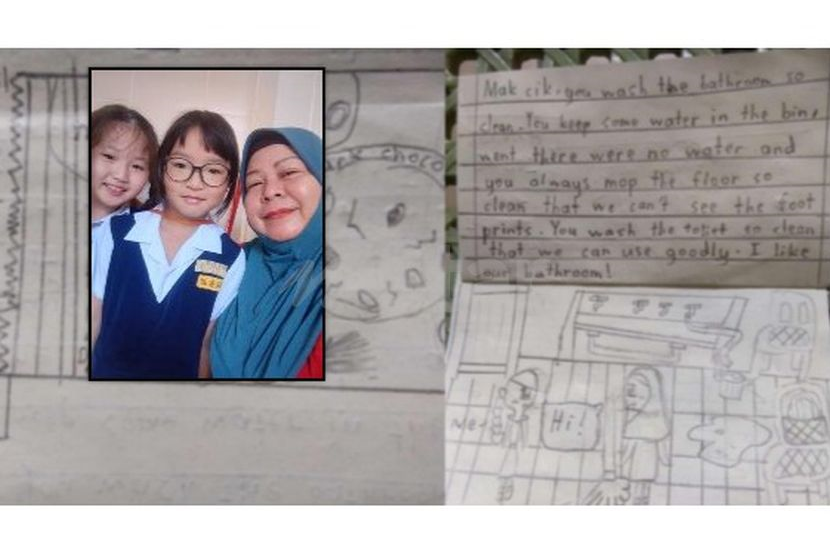 Mak cik, you wash the bathroom so
clean. You keep some water in the bin,
went there were no water and
you always mop the floor so
clean that we can't see the foot
prints. You wash the toilet so clean
that we can use goodly. I like
our bathroom!
Me
Hi!
choco